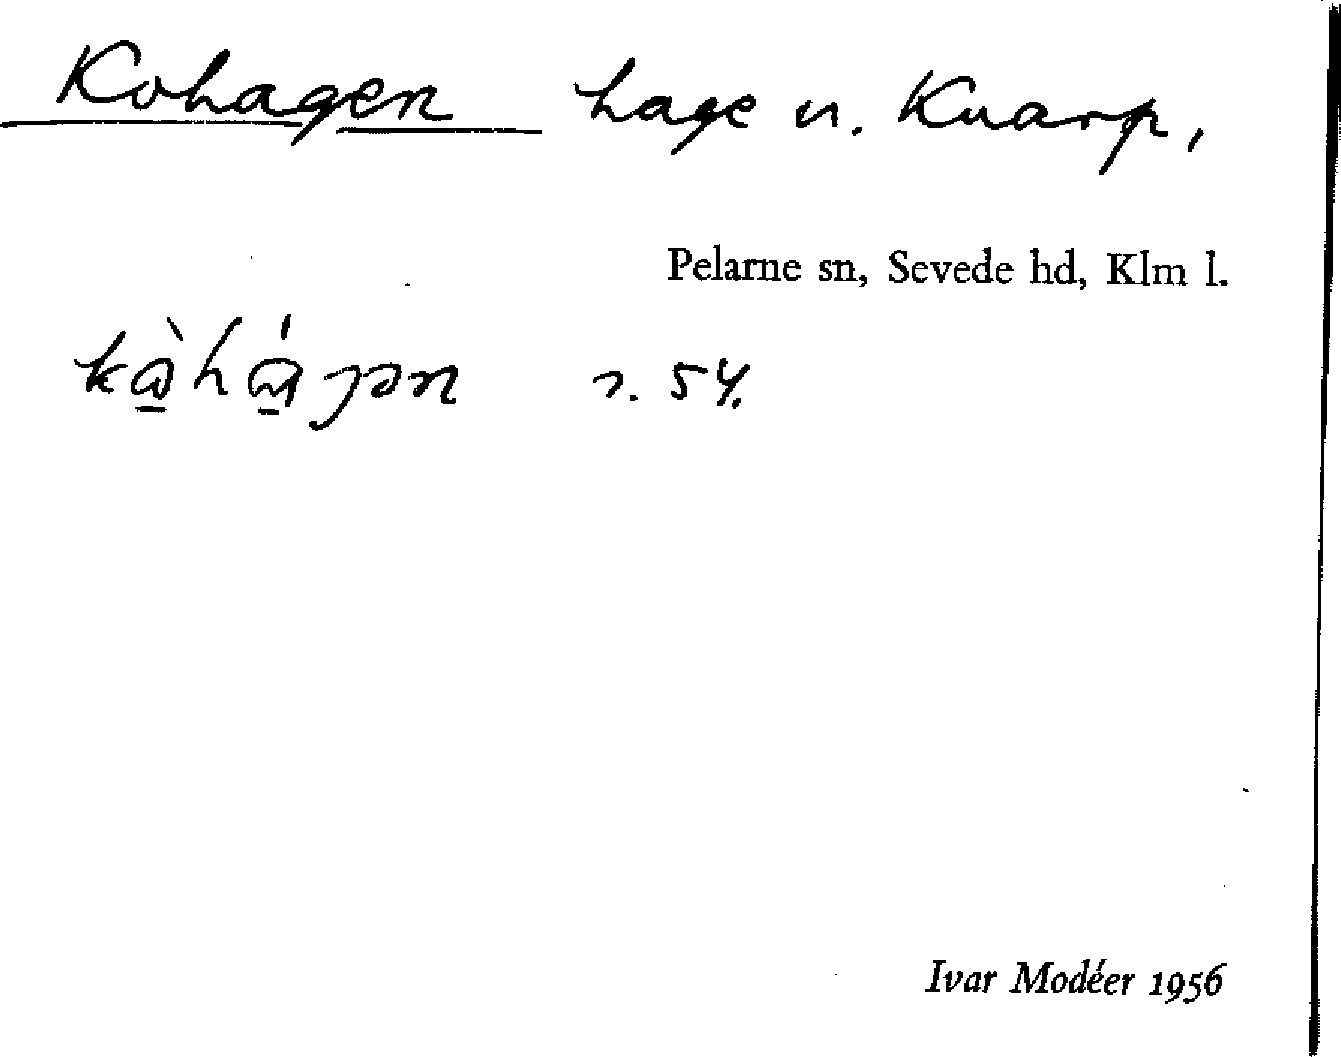 Kohagen hage u. Knarp,
Pelarne sn, Sevede hd, Klm l.
s. 54.
Ivar Modéer 1956